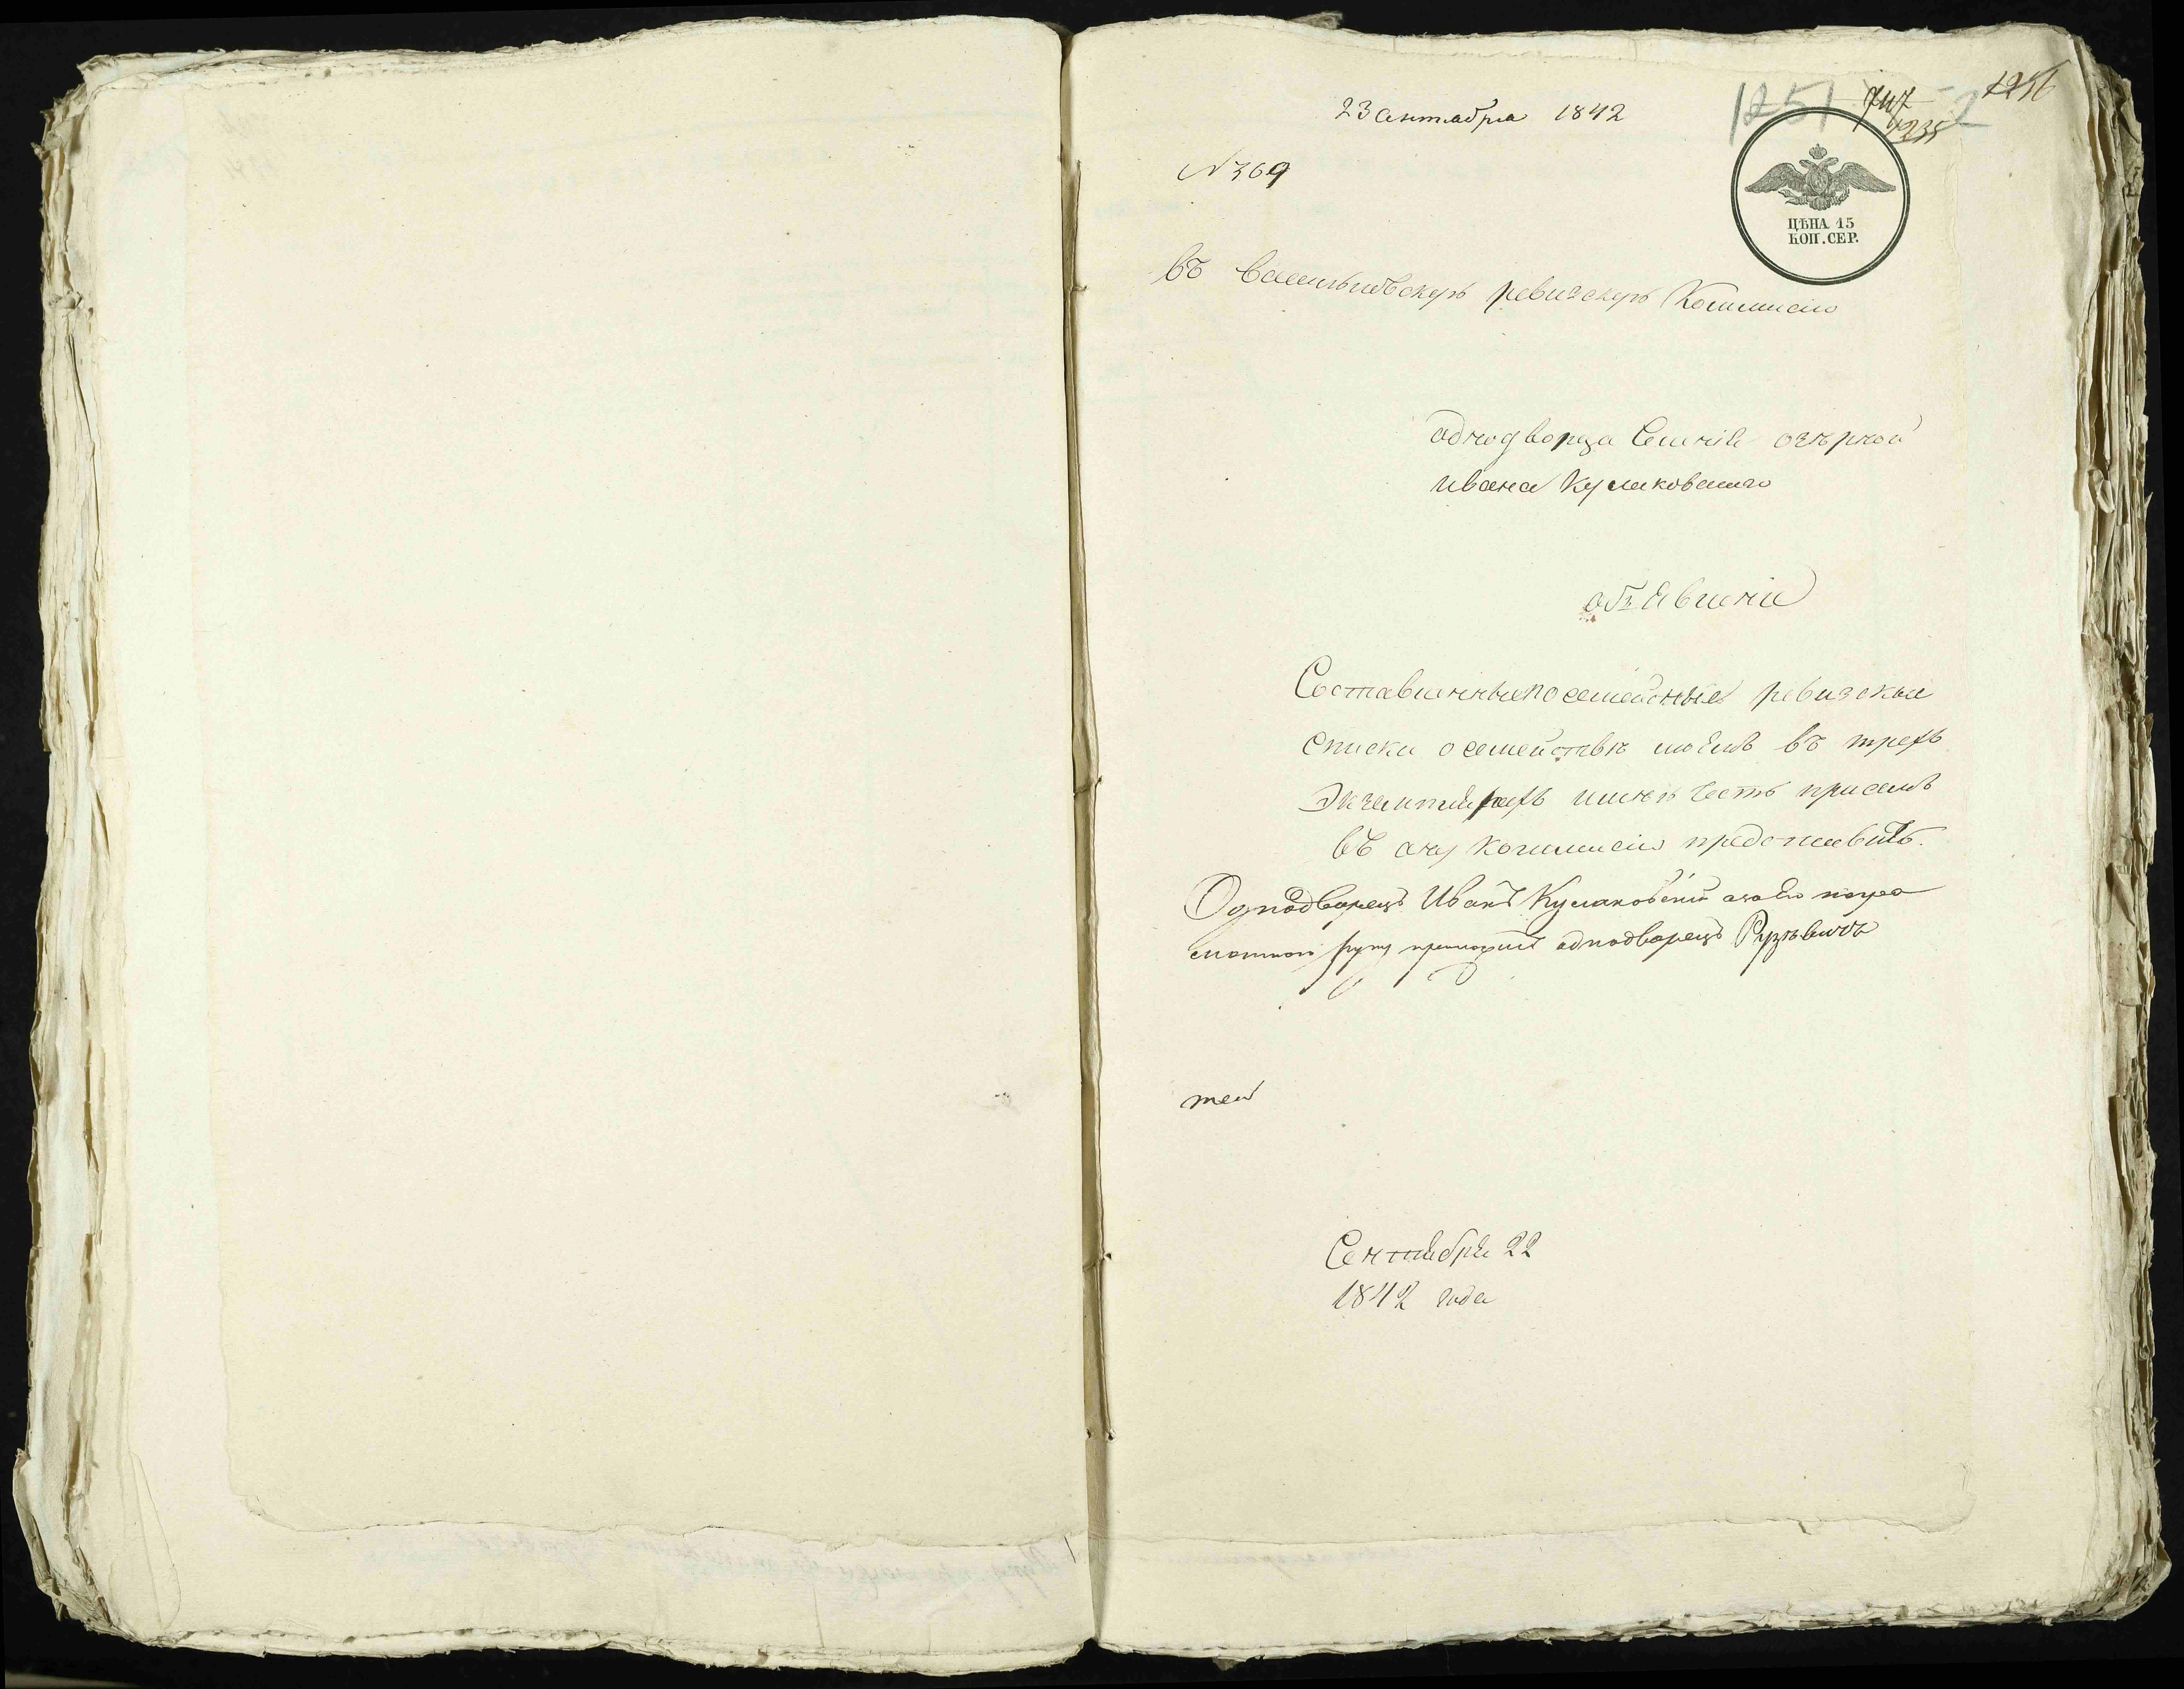 23 сентября 1842
1251
1235
1256
N 369
ЦѢНА 15
КОП. СЕР.
въ васильковскую ревизскую Коммисію
однодворца Селенія озѣрной
ивана Кулаковскаго
объявленіе
Составленные посемейные ревизскіе
списки о семействѣ моемъ въ трехъ
Экземплярахъ имѣю честь присемъ
въ ону коммисію предоставить.
Однодворецъ Иванъ Кулаковскій а за его негра
мотного руку приложилъ однодворецъ
Сентября 22
1842 года